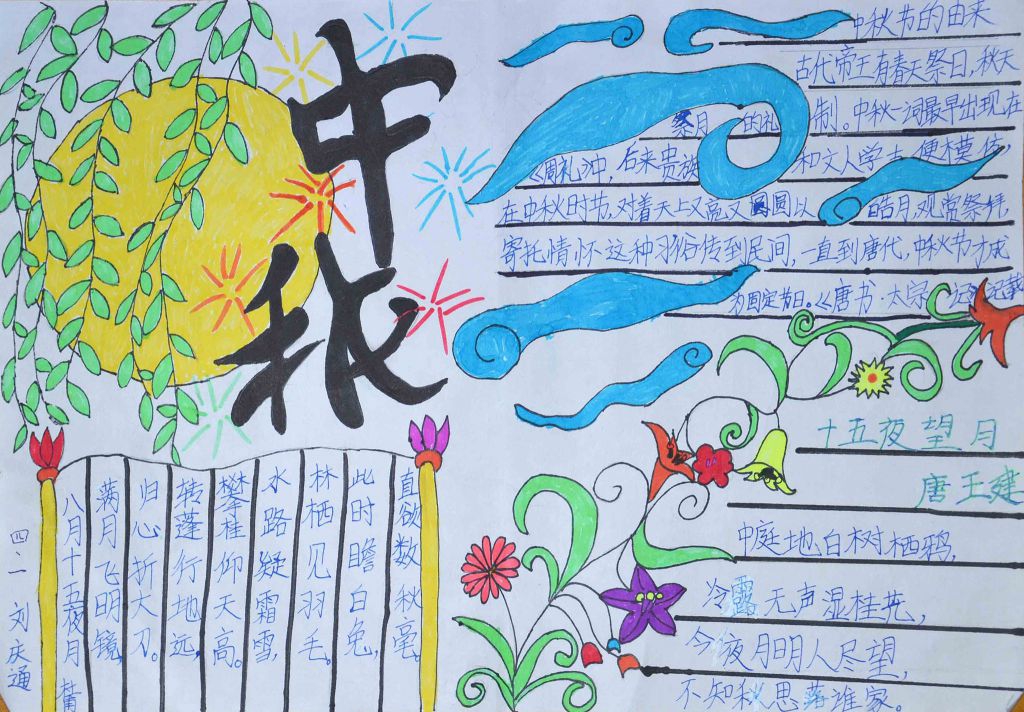 中秋
中秋节的由来
古代帝王有春天祭日,秋天
祭月 的礼 制。中秋一词最早出现在
《周礼》中,后来贵族 和文人学士 便模仿,
在中秋时节,对着天上又亮又 圆圆以 皓月,观赏祭拜,
寄托情怀 这种习俗传到民间,一直到唐代,中秋节才成
为固定节日。《唐书·太宗 记》记载
十五夜望月
唐 王建
中庭地白树栖鸦,
冷露无声湿桂花,
今夜月明人尽望,
不知秋思落谁家。
八月十五夜月 甫
满月飞明镜,
归心折大刀。
转蓬行地远,
攀桂仰天高。
水路疑霜雪,
林栖见羽毛。
此时瞻白兔,
直欲数秋毫。
四、二 刘庆通